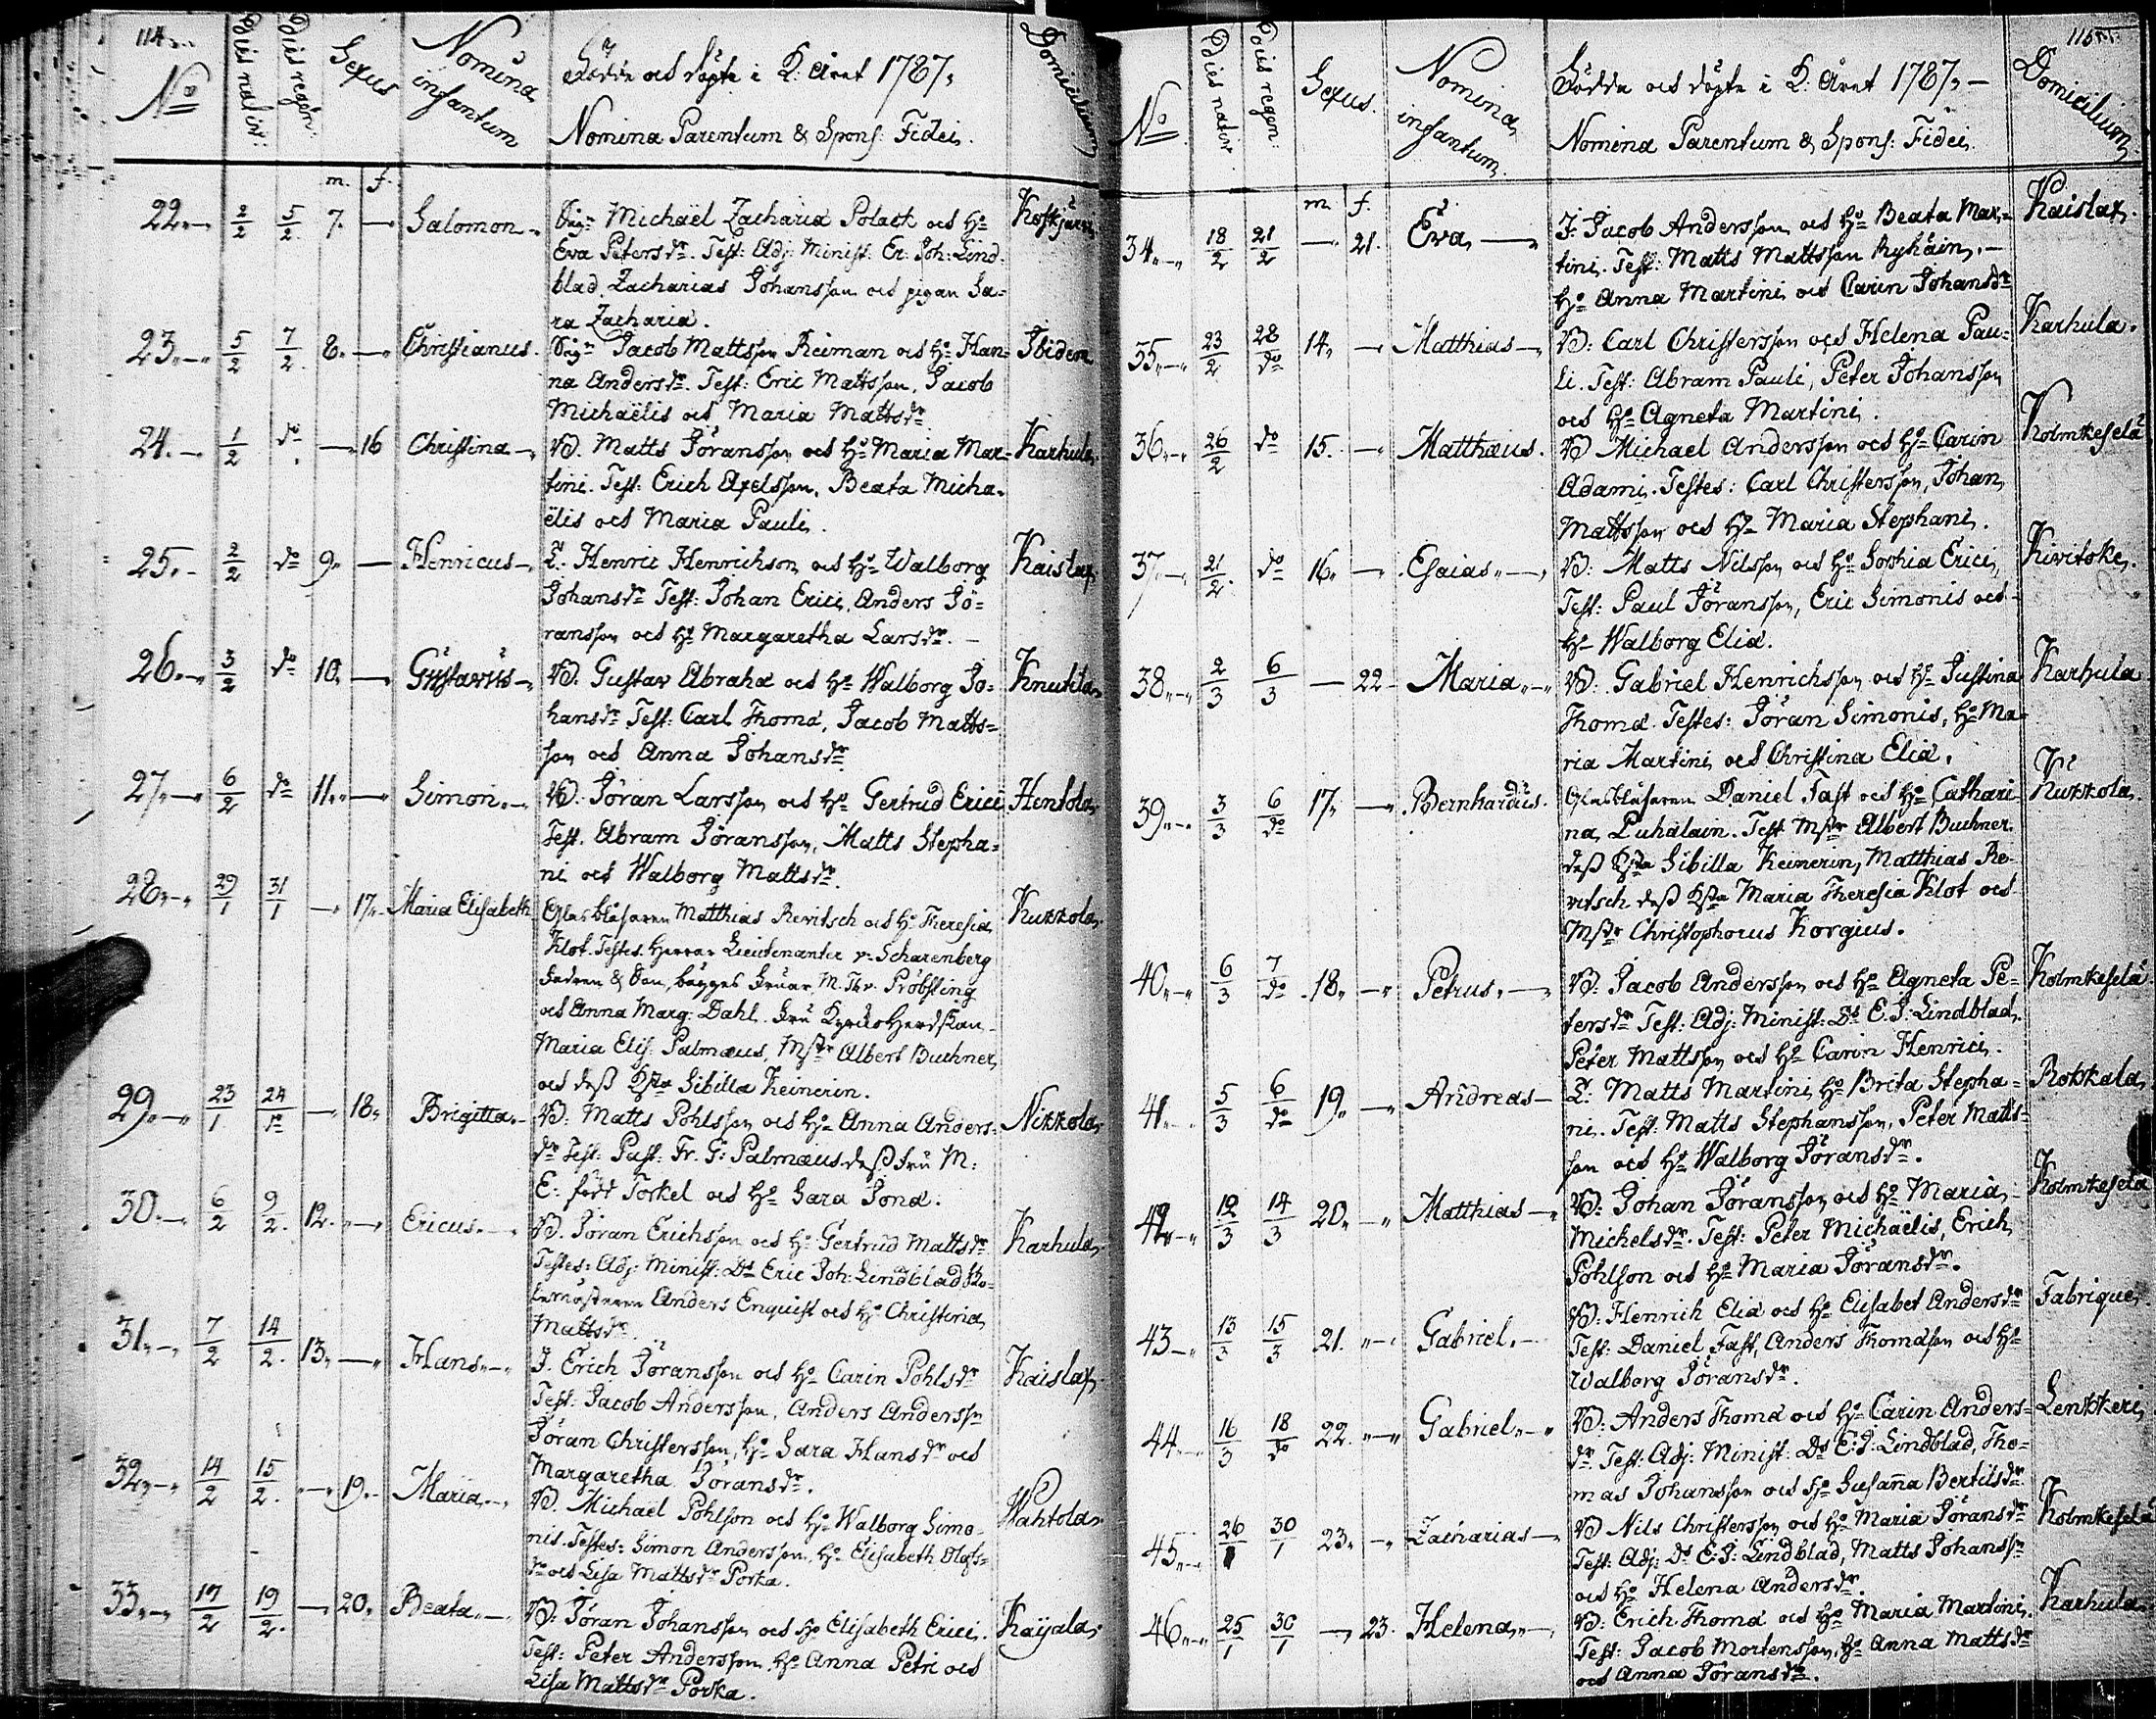 114
No Dies nativ: Dies regen: Sexus Nomina infantum Födde och döpte i K: Året 1787, Domicilium
Nomina Parentum & Spons: Fidei.
m. f.
22 2/2 5/2 7 — Salomon Michaël Zachariæ Polack och H:o Koskjärvi
Eva Petersdr. Test: Adj: Minist: Er: Joh: Lind-
blad, Zacharias Johansson och pigan Sa-
ra Zachariæ.
23 5/2 7/2 8 — Christianus. Jacob Mattsson Reiman och H:o Han- Ibidem
na Andersdr. Test: Eric Mattsson, Jacob
Michaëlis och Maria Mattsdr.
24 1/2 do — 16 Christina B. Matts Jöransson och H:o Maria Mar- Karhula
tini. Test: Erich Axelsson, Beata Micha-
ëlis och Maria Pauli.
25 2/2 do 9 — Henricus L. Henric Henrichson och H:o Walborg Kaislax
Johansdr Test: Johan Erici, Anders Jö-
ransson och H:o Margaretha Larsdr. —
26 3/2 do 10 — Gustavus B. Gustav Abrahæ och H:o Walborg Jo- Knutila
hansdr Test: Carl Thomæ, Jacob Matts-
son och Anna Johansdr
27 6/2 do 11 — Simon B. Jöran Larsson och H:o Gertrud Erici Hentola
Test. Abram Jöransson, Matts Stepha-
ni och Walborg Mattsdr.
28 29/1 31/1 — 17 Maria Elisabeth Glasblåsaren Matthias Revitsch och H:o Theresia Kukkola
Klot. Testes. Herrar Lieutenanter v: Scharenberg
Fadren & Son, bägges Fruar, M. Thr. Pröbsting
och Anna Marg: Dahl. Fru Kyrkoherdskan
Maria Elis: Palmæus, Mstr Albert Buchner
och dess Hstru Sibilla Keinerin.
29 23/1 24/1 — 18 Brigitta B: Matts Pohlsson och H:o Anna Anders- Nikkola
dr Test: Past: Fr. G: Palmæus dess fru M:
E: född Forkel och H:o Sara Jonæ.
30 6/2 9/2 12 — Ericus B. Jöran Erichsson och H:o Gertrud Mattsdr Karhula
Testes: Adj: Minist: Ds Eric Joh: Lindblad
Anders Enquist och H:o Christina
Mattsdr.
31 7/2 14/2 13 — Hans J. Erich Jöransson och H:o Carin Pohlsdr Kaislax
Test: Jacob Andersson, Anders Andersson
Jöran Christersson, H:o Sara Hansdr och
Margaretha Jöransdr.
32 14/2 15/2 — 19 Maria B. Michaël Pohlson och H:o Walborg Simo- Wahtola
nis. Testes: Simon Andersson, H:o Elisabeth Olofs-
dr och Lisa Mattsdr Porka.
33 17/2 19/2 — 20 Beata B: Jöran Johansson och H:o Elisabeth Erici. Kaÿala
Test: Peter Andersson, H:o Anna Petri och
Lisa Mattsdr Porka.
115
No Dies nativ Dies regen: Sexus. Nomina infantum Födde och döpte i K: Året 1787, — Domicilium
Nomina Parentum & Spons: Fidei.
m. f.
34 18/2 21/2 — 21. Eva J: Jacob Andersson och H:o Beata Mar- Kaislax.
tini. Test: Matts Mattsson Ryhäin,
H:o Anna Martini och Carin Johansdr
35 23/2 28/do 14 — Matthias B: Carl Christersson och Helena Pau- Karhula.
li. Test: Abram Pauli, Peter Johansson
och H:o Agneta Martini.
36 26/2 do 15. — Matthæus. B Michael Andersson och H:o Carin Kolmkeselä
Adami. Testes: Carl Christersson, Johan
Mattsson och H:o Maria Stephani.
37 21/2 do 16 — Esaias B: Matts Nilsson och H:o Sophia Erici, Kuvitske
Test: Paul Jöransson, Eric Simonis och
H:o Walborg Eliæ.
38 2/3 6/3 — 22 Maria B: Gabriel Henrichsson och H:o Justina Karhula
Thomæ. Testes: Jöran Simonis, H:o Ma-
ria Martini och Christina Eliæ.
39 3/3 6/do 17 — Bernhardus. Glasblåsaren Daniel Fast och H:o Cathari- Kukkola
na Puhalain. Test Mstr Albert Buchner.
dess Hstru Sibilla Keinerin, Matthias Re-
vitsch dess Hstru Maria Theresia Klot och
Mstr Christophorus Korgius.
40 6/3 7/do 18 — Petrus B: Jacob Andersson och H:o Agneta Pe- Kolmkeselä
tersdr Test: Adj: Minist: Ds E. J: Lindblad,
Peter Mattsson och H:o Carin Henrici.
41 5/3 6/do 19 — Andreas L: Matts Martini, H:o Brita Stepha- Rokkala
ni. Test: Matts Stephansson, Peter Matts-
son och H:o Walborg Jöransdr.
42 12/3 14/3 20 — Matthias B: Johan Jöransson och H:o Maria Kolmkeselä
Michelsdr. Test: Peter Michaëlis, Erich
Pohlson och H:o Maria Jöransdr.
43 13/3 15/3 21. — Gabriel B: Henrich Eliæ och H:o Elisabet Andersdr Fabrique
Test: Daniel Fast, Anders Thomasson och H:o
Walborg Jöransdr.
44 16/3 18/do 22. — Gabriel B: Anders Thomæ och H:o Carin Anders- Lenkkeri
dr. Test: Adj: Minist: Ds E: J: Lindblad, Tho-
mas Johansson och H:o Susanna Bertilsdr
45 26/1 30/1 23 — Zacharias B Nils Christersson och H:o Maria Jöransdr Kolmkeselä
Test: Adj: Ds E: J: Lindblad, Matts Johanss:n
och H:o Helena Andersdr.
46 25/1 30/1 — 23. Helena B: Erich Thomæ och H:o Maria Martini. Karhula
Test: Jacob Mortensson, H:o Anna Mattsdr
och Anna Jöransdr.